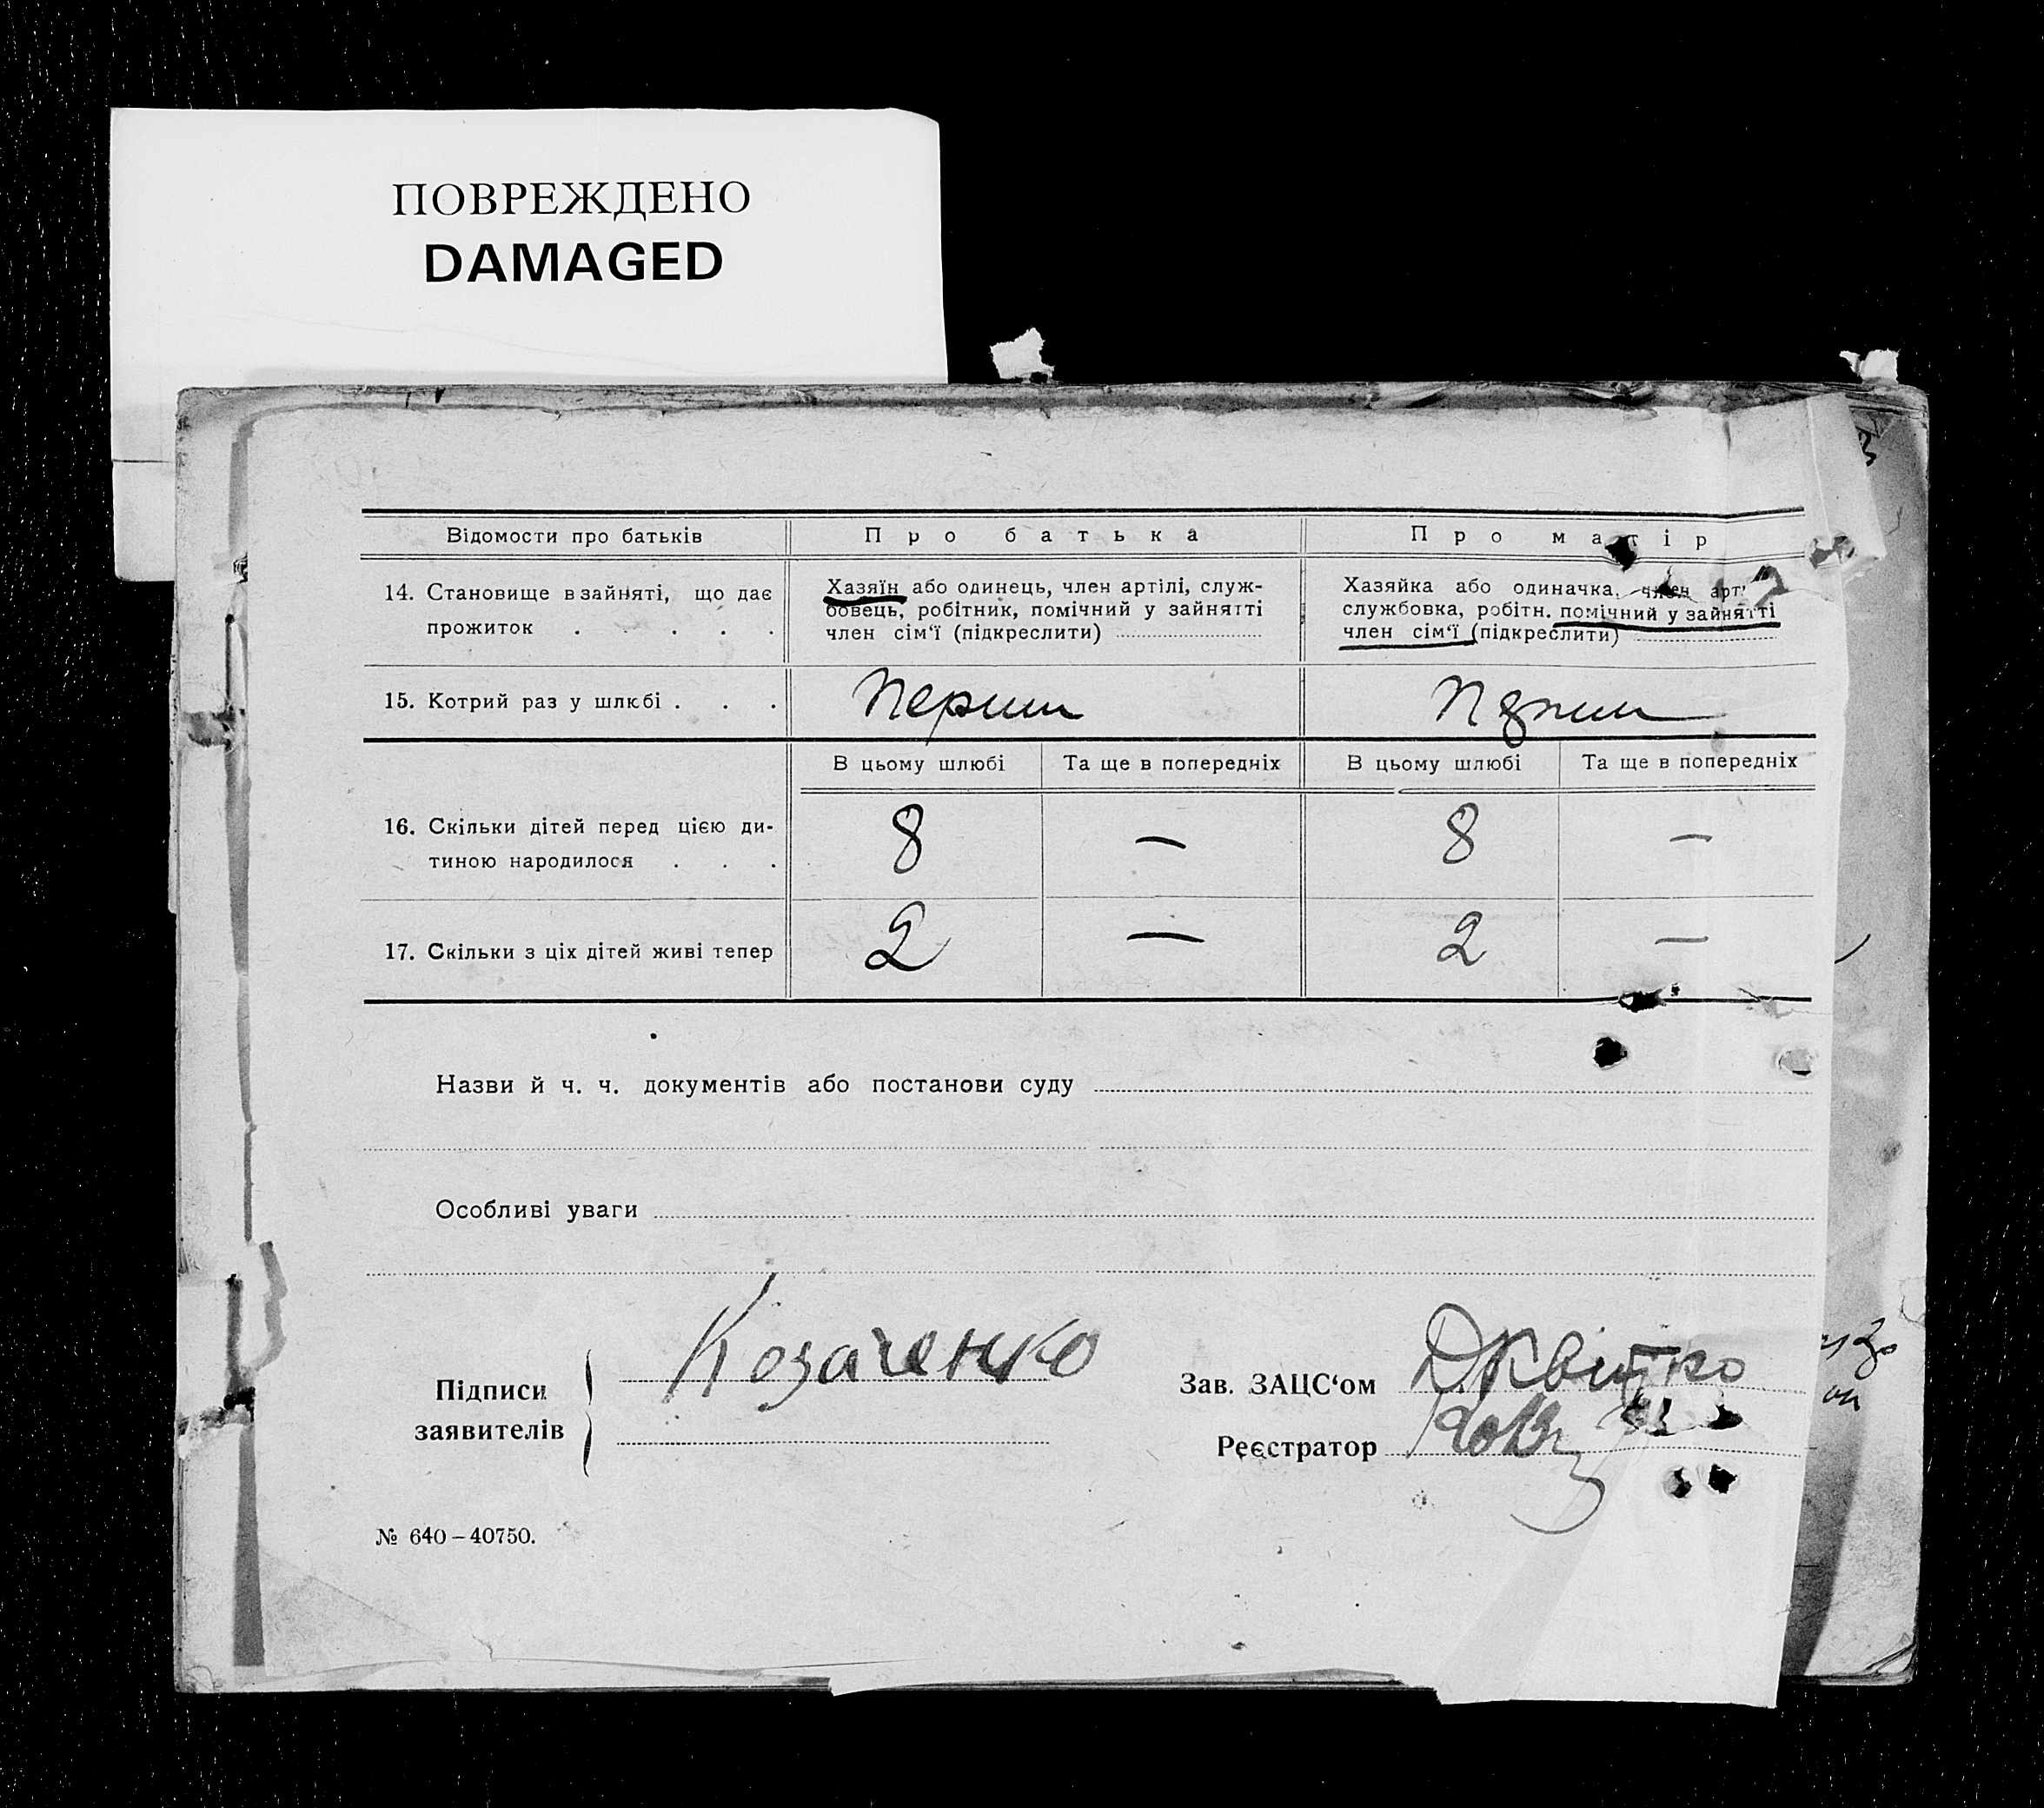 ПОВРЕЖДЕНО
DAMAGED
Відомости про батьків
Про батька
Про матір
14. Становище в зайняті, що дає
прожиток . . . . .
Хазяїн або одинець, член артілі, служ-
бовець, робітник, помічний у зайнятті
член сім‘ї (підкреслити)
Хазяйка або одиначка, член арт
службовка, робітн. помічний у зайнятті
член сім‘ї (підкреслити)
15. Котрий раз у шлюбі . . .
Перший
В цьому шлюбі
Та ще в попередніх
В цьому шлюбі
Та ще в попередніх
16. Скільки дітей перед цією ди-
тиною народилося . . .
8 — 8 —
17. Скільки з ціх дітей живі тепер
2 — 2 —
Назви й ч. ч. документів або постанови суду
Особливі уваги
Підписи
заявителів
Козаченко
Зав. ЗАЦС‘ом
Реєстратор
№ 640–40750.